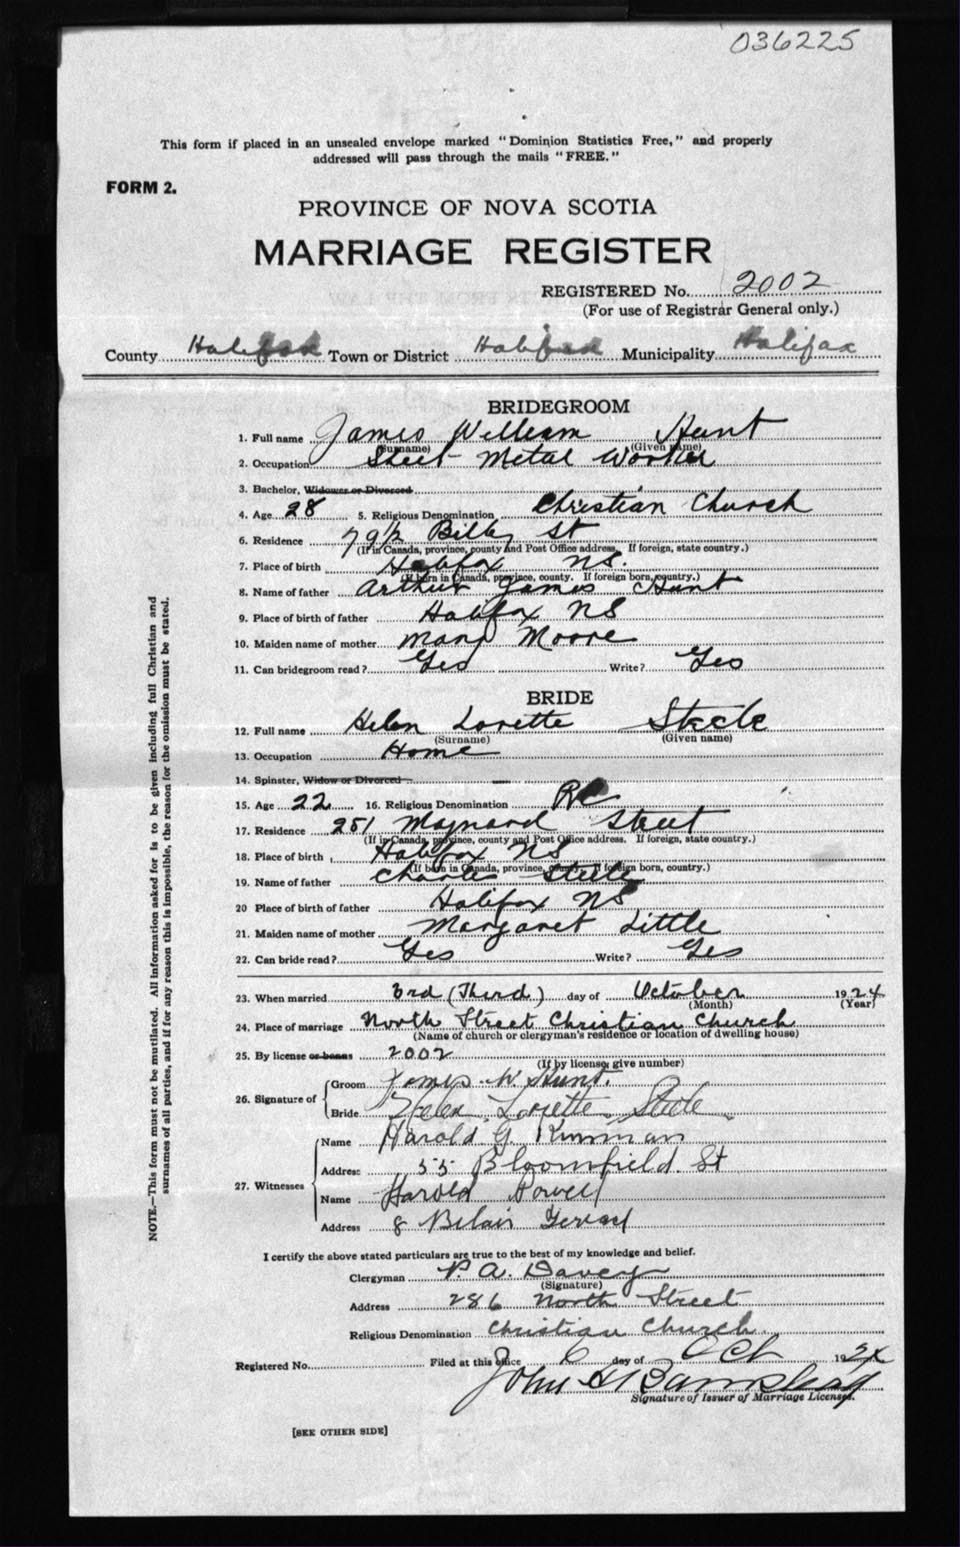 036225
This form if placed in an unsealed envelope marked "Dominion Statistics Free," and properly
addressed will pass through the mails "FREE."
FORM 2.
PROVINCE OF NOVA SCOTIA
MARRIAGE REGISTER
REGISTERED No. 2002
(For use of Registrar General only.)
County Halifax Town or District Halifax Municipality Halifax
BRIDEGROOM
1. Full name James William Hunt
(Surname) (Given name)
2. Occupation Sheet Metal Worker
3. Bachelor, Widower or Divorced
4. Age 28 5. Religious Denomination Christian Church
6. Residence 79½ Bilby St
(If in Canada, province, county and Post Office address. If foreign, state country.)
7. Place of birth Halifax NS.
(If born in Canada, province, county. If foreign born, country.)
8. Name of father Arthur James Hunt
9. Place of birth of father Halifax NS
10. Maiden name of mother Mary Moore
11. Can bridegroom read? Yes Write? Yes
BRIDE
12. Full name Helen Lorette Steele
(Surname) (Given name)
13. Occupation Home
14. Spinster, Widow or Divorced
15. Age 22 16. Religious Denomination RC
17. Residence 251 Maynard Street
(If in Canada, province, county and Post Office address. If foreign, state country.)
18. Place of birth Halifax NS
(If born in Canada, province, county. If foreign born, country.)
19. Name of father Charles Steele
20 Place of birth of father Halifax NS
21. Maiden name of mother Margaret Little
22. Can bride read? Yes Write? Yes
23. When married 3rd (Third) day of October 1924
(Month) (Year)
24. Place of marriage North Street Christian Church
(Name of church or clergyman's residence or location of dwelling house)
25. By license or banns 2002
(If by license, give number)
26. Signature of
Groom James W. Hunt.
Bride Helen Lorette Steele
27. Witnesses
Name Harold G. Kinsman
Address 55 Bloomfield St
Name Harold Powell
Address 8 Belair Terrace
I certify the above stated particulars are true to the best of my knowledge and belief.
Clergyman P. A. Davey
(Signature)
Address 286 North Street
Religious Denomination Christian Church.
Registered No. Filed at this office 6 day of Oct 1924
John
Signature of Issuer of Marriage Licenses.
[SEE OTHER SIDE]
NOTE.—This form must not be mutilated. All information asked for is to be given including full Christian and
surnames of all parties, and if for any reason this is impossible, the reason for the omission must be stated.